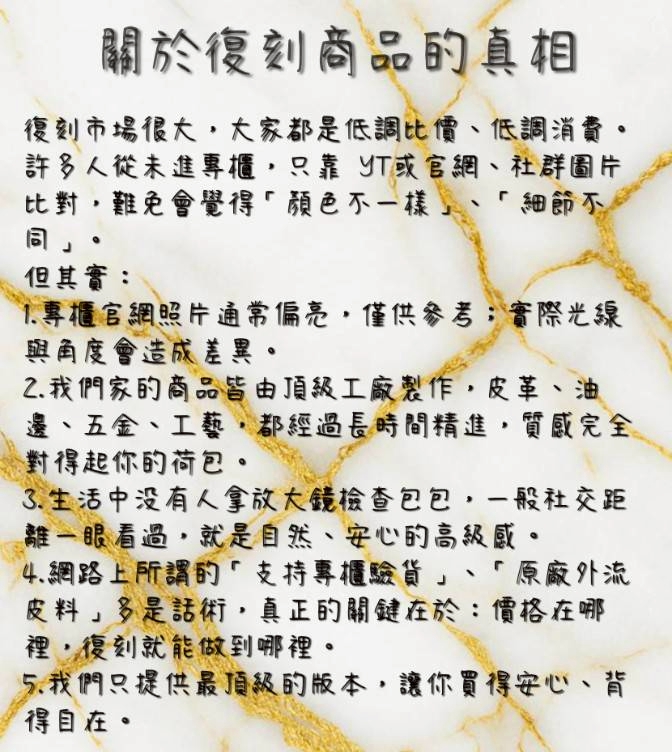 關於復刻商品的真相
復刻市場很大，大家都是低調比價、低調消費。
許多人從未進專櫃，只靠 YT或官網、社群圖片
比對，難免會覺得「顏色不一樣」、「細節不
同」。
但其實：
1.專櫃官網照片通常偏亮，僅供參考；實際光線
與角度會造成差異。
2.我們家的商品皆由頂級工廠製作，皮革、油
邊、五金、工藝，都經過長時間精進，質感完全
對得起你的荷包。
3.生活中沒有人拿放大鏡檢查包包，一般社交距
離一眼看過，就是自然、安心的高級感。
4.網路上所謂的「支持專櫃驗貨」、「原廠外流
皮料」多是話術，真正的關鍵在於：價格在哪
裡，復刻就能做到哪裡。
5.我們只提供最頂級的版本，讓你買得安心、背
得自在。